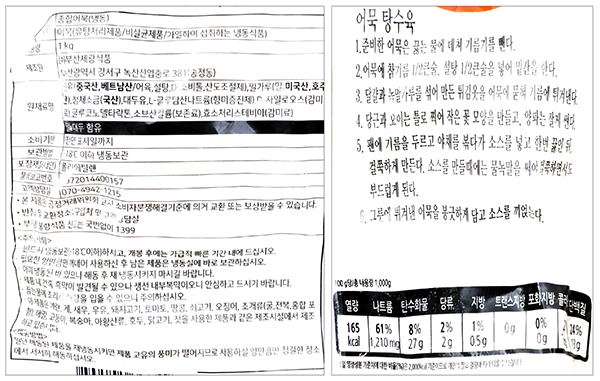 종합어묵(냉동)
어묵(유탕처리제품/비살균제품/가열하여 섭취하는 냉동식품)
1 kg
제조원 부산세광식품
부산광역시 강서구 녹산산업중로
원재료명
(중국산,베트남산)/어육,설탕, 소비톨,산도조절제),밀가루(밀:미국산,호주
정제소금(국산),대두유,L-글루탐산나트륨(향미증진제) D-자일로오스(감미
글루코노델타락톤,소브산칼륨(보존료),효소처리스테비아(감미료)
대두 함유
소비기한 표시일까지
보관방법 -18℃이하 냉동보관
폴리에틸렌
972014400157
고객상담실 (070-4942-1215
• 본 제품은 공정거래위원회 고시 소비자분쟁해결기준에 의거 교환 또는 보상받을 수 있습니다.
• 반품 및 교환장소:구입처 및
• 부정·불량식품 신고는 국번없이 1399
<주의사항>
반드시 냉동보관(-18℃이하)하시고, 개봉 후에는 가급적 빠른 기간 내에 드십시오.
필요한 양만큼만 떼내어 사용하신 후 남은 제품은 냉동실에 바로 보관하십시오.
이미 냉동된 바 있으니 해동 후 재 냉동시키지 마시길 바랍니다.
제품내 간혹 흑막이 발견될 수 있으나 생선 내부복막이오니 안심하고 드시기 바랍니다.
을 입을 수 있으니 주의하십시오.
게, 새우, 우유, 돼지고기, 토마토, 땅콩, 쇠고기, 오징어, 조개류(굴,전복,홍합 포
함), 메밀, 고등어, 복숭아, 아황산류, 호두, 닭고기, 잣을 사용한 제품과 같은 제조시설에서 제조
<보관방법>
일단 해동된 제품을 재냉동시키면 제품 고유의 풍미가 떨어지므로 사용하실 양만큼만 청결한 장소
에서 서서히 해동하십시오.
어묵 탕수육
1.준비한 어묵은 끓는 물에 데쳐 기름기를 뺀다.
2.어묵에 참기름 1/2큰술, 설탕 1/2큰술을 넣어 밑간을 한다.
3. 달걀과 녹말가루를 섞어 만든 튀김옷을 어묵에 묻혀 기름에 튀겨낸다.
4. 당근과 오이는 틀로 찍어 작은 꽃 모양을 만들고, 양파는 잘게 썬다.
5. 팬에 기름을 두르고 야채를 볶다가 소스를 넣고 한번 끓인 뒤
걸쭉하게 만든다. 소스를 만들때에는 물녹말을 써야 걸쭉하면서도
부드럽게 된다.
6. 그릇에 튀겨낸 어묵을 봉긋하게 담고 소스를 끼얹는다.
100 g당/총 내용량 1,000g
열량 나트륨 탄수화물 당류 지방 트랜스지방 포화지방 단백질
165 kcal 61% 1,210 mg 8% 27 g 2% 2 g 1% 0.5 g 0 g 0% 0 g 24%